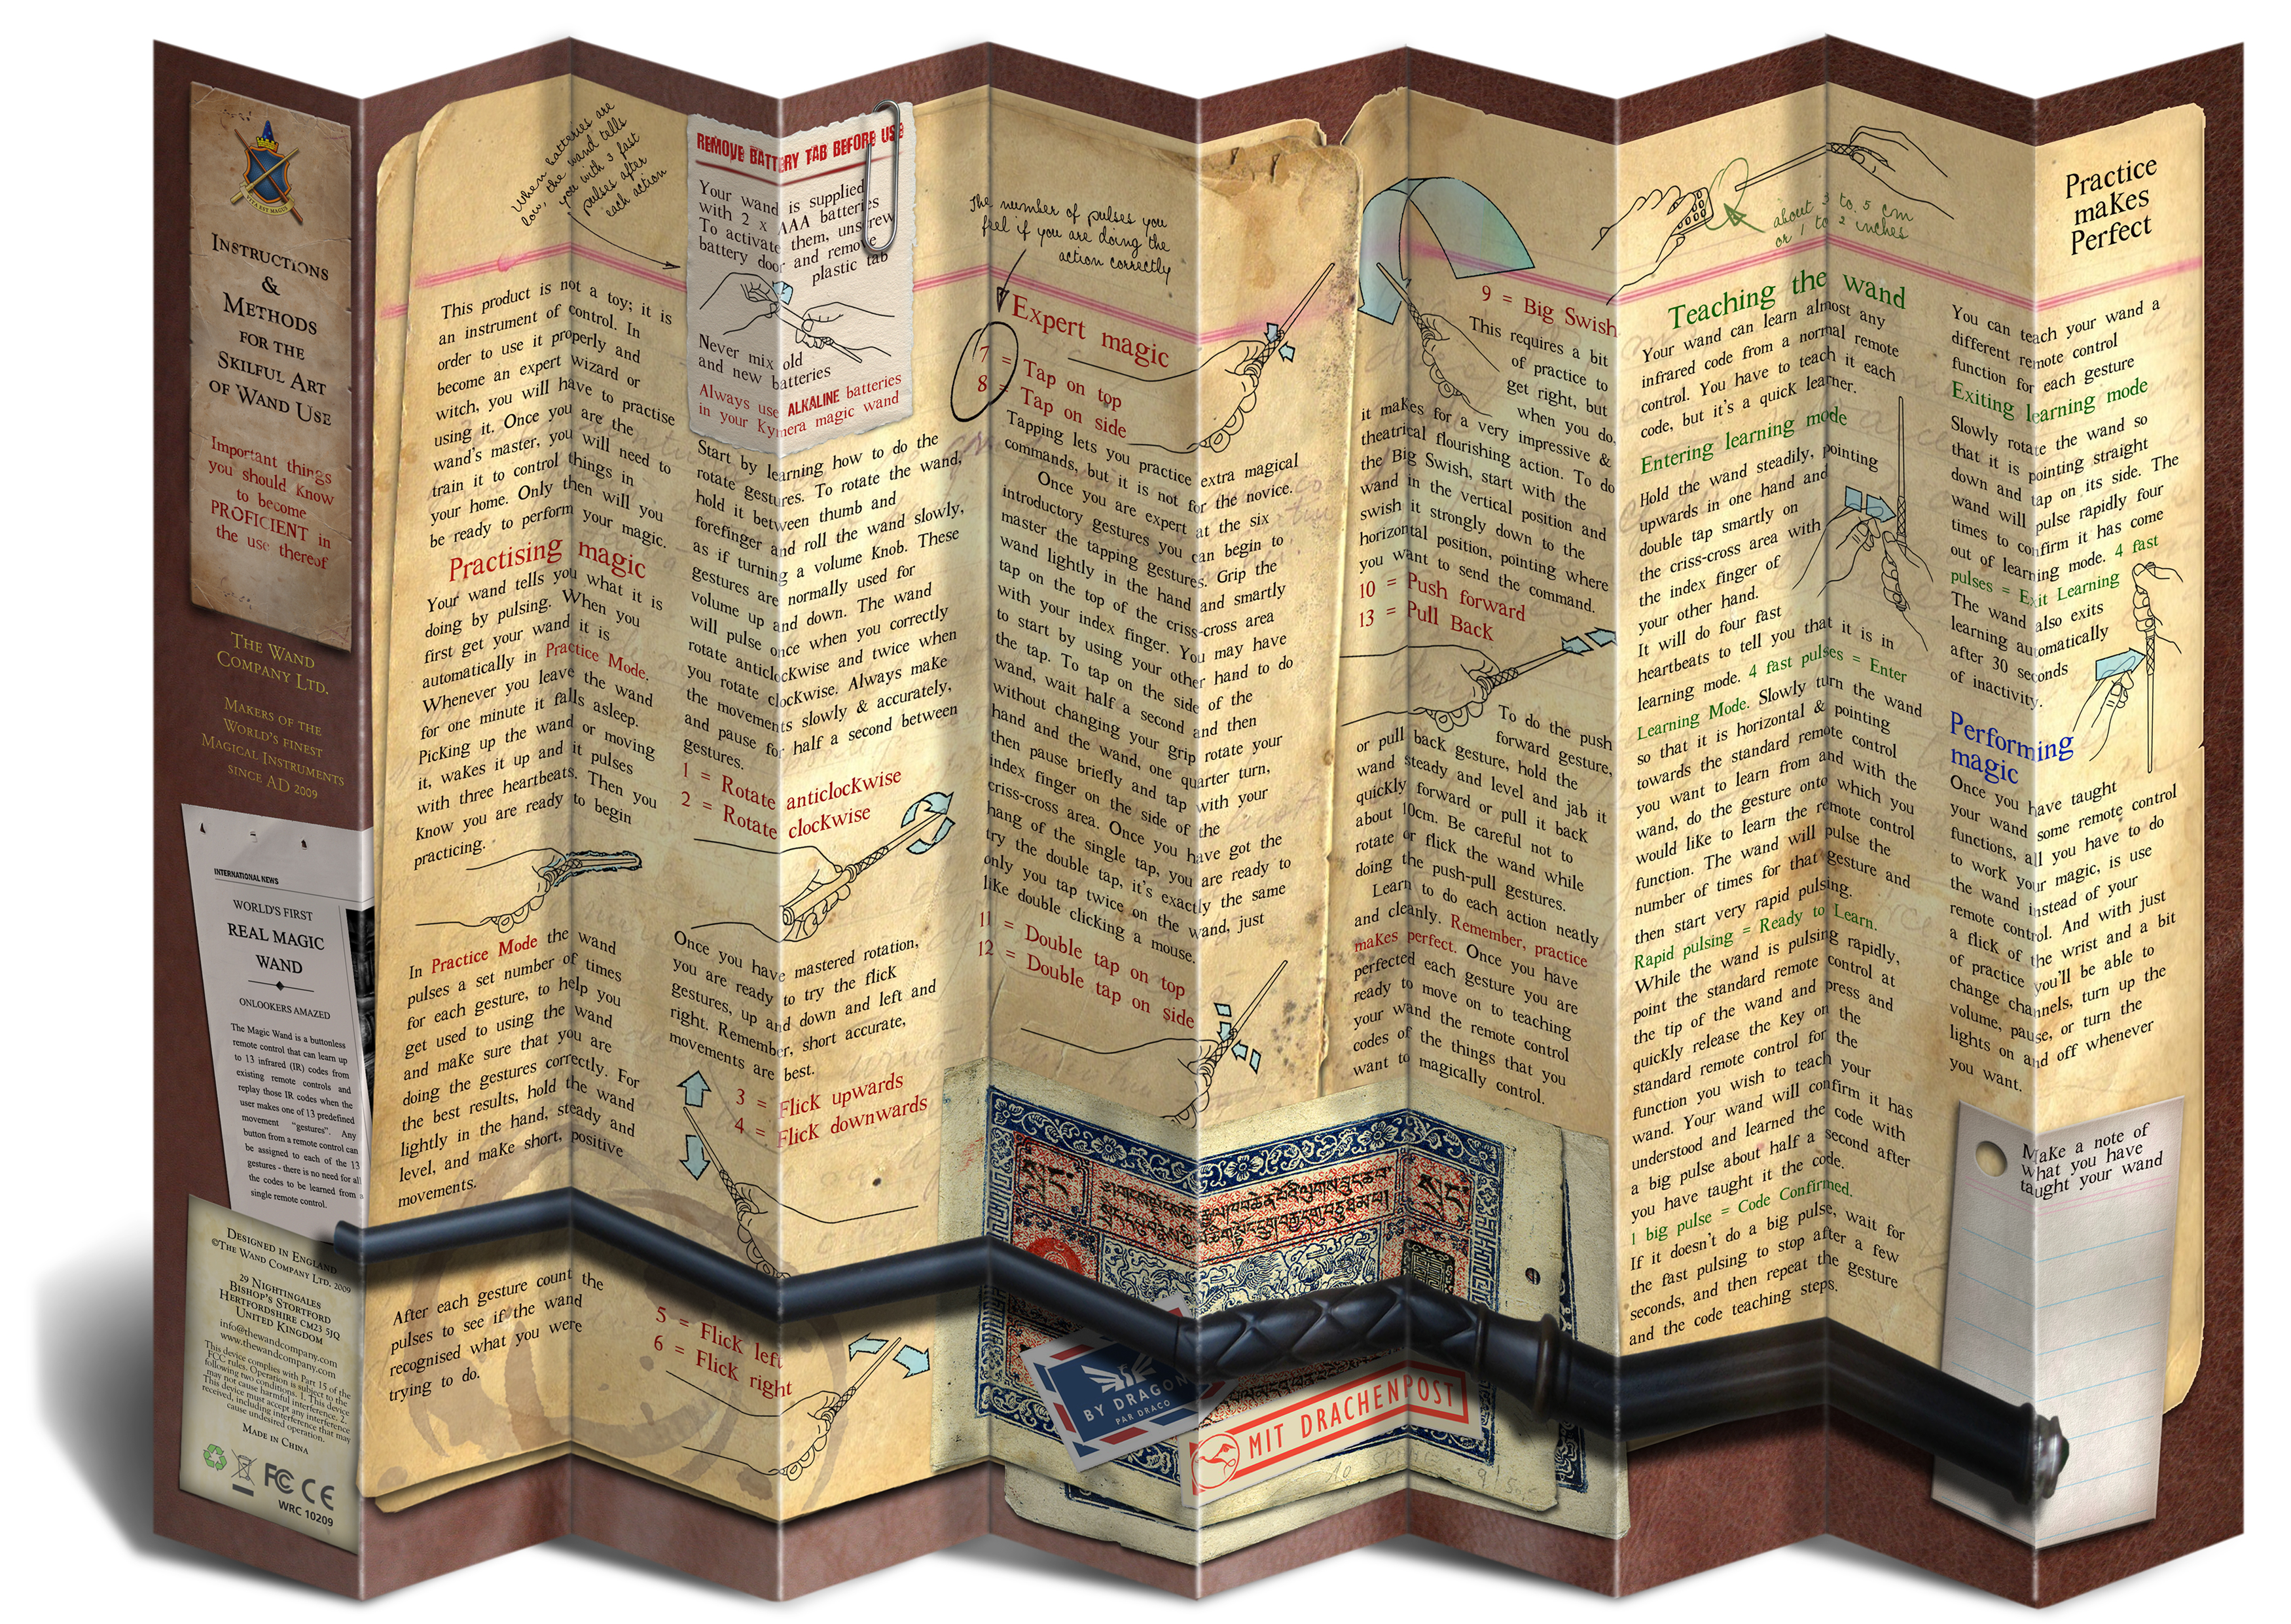 INSTRUCTIONS
&
METHODS
FOR THE
SKILFUL ART
OF WAND USE
Important things
you should know
to become
PROFICIENT in
the use thereof
THE WAND
COMPANY LTD.
MAKERS OF THE
WORLD'S FINEST
MAGICAL INSTRUMENTS
SINCE AD 2009
INTERNATIONAL NEWS
WORLD'S FIRST
REAL MAGIC
WAND
ONLOOKERS AMAZED
The Magic Wand is a buttonless
remote control that can learn up
to 13 infrared (IR) codes from
existing remote controls and
replay those IR codes when the
user makes one of 13 predefined
movement "gestures". Any
button from a remote control can
be assigned to each of the 13
gestures - there is no need for all
the codes to be learned from a
single remote control.
DESIGNED IN ENGLAND
©THE WAND COMPANY LTD. 2009
29 NIGHTINGALES
BISHOP'S STORTFORD
HERTFORDSHIRE CM23 5JQ
UNITED KINGDOM
info@thewandcompany.com
www.thewandcompany.com
This device complies with Part 15 of the
FCC rules. Operation is subject to the
following two conditions. 1. This device
may not cause harmful interference. 2.
This device must accept any interference
received, including interference that may
cause undesired operation.
MADE IN CHINA
FC CE
WRC 10209
When batteries are
low, the wand tells
you with 3 fast
pulses after
each action
This product is not a toy; it is
an instrument of control. In
order to use it properly and
become an expert wizard or
witch, you will have to practise
using it. Once you are the
wand's master, you will need to
train it to control things in
your home. Only then will you
be ready to perform your magic.
Practising magic
Your wand tells you what it is
doing by pulsing. When you
first get your wand it is
automatically in Practice Mode.
Whenever you leave the wand
for one minute it falls asleep.
Picking up the wand or moving
it, wakes it up and it pulses
with three heartbeats. Then you
Know you are ready to begin
practicing.
In Practice Mode the wand
pulses a set number of times
for each gesture, to help you
get used to using the wand
and make sure that you are
doing the gestures correctly. For
the best results, hold the wand
lightly in the hand, steady and
level, and make short, positive
movements.
After each gesture count the
pulses to see if the wand
recognised what you were
trying to do.
REMOVE BATTERY TAB BEFORE USE
Your wand is supplied
with 2 x AAA batteries
To activate them, unscrew
battery door and remove
plastic tab
Never mix old
and new batteries
Always use ALKALINE batteries
in your Kymera magic wand
Start by learning how to do the
rotate gestures. To rotate the wand,
hold it between thumb and
forefinger and roll the wand slowly,
as if turning a volume Knob. These
gestures are normally used for
volume up and down. The wand
will pulse once when you correctly
rotate anticlockwise and twice when
you rotate clockwise. Always make
the movements slowly & accurately,
and pause for half a second between
gestures.
1 = Rotate anticlockwise
2 = Rotate clockwise
Once you have mastered rotation,
you are ready to try the flick
gestures, up and down and left and
right. Remember, short accurate,
movements are best.
3 = Flick upwards
4 = Flick downwards
5 = Flick left
6 = Flick right
The number of pulses you
feel if you are doing the
action correctly
Expert magic
7 = Tap on top
8 = Tap on side
Tapping lets you practice extra magical
commands, but it is not for the novice.
Once you are expert at the six
introductory gestures you can begin to
master the tapping gestures. Grip the
wand lightly in the hand and smartly
tap on the top of the criss-cross area
with your index finger. You may have
to start by using your other hand to do
the tap. To tap on the side of the
wand, wait half a second and then
without changing your grip rotate your
hand and the wand, one quarter turn,
then pause briefly and tap with your
index finger on the side of the
criss-cross area. Once you have got the
hang of the single tap, you are ready to
try the double tap, it's exactly the same
only you tap twice on the wand, just
like double clicking a mouse.
11 = Double tap on top
12 = Double tap on side
BY DRAGON
PAR DRACO
MIT DRACHENPOST
9 = Big Swish
This requires a bit
of practice to
get right, but
when you do,
it makes for a very impressive &
theatrical flourishing action. To do
the Big Swish, start with the
wand in the vertical position and
swish it strongly down to the
horizontal position, pointing where
you want to send the command.
10 = Push forward
13 = Pull Back
To do the push
forward gesture,
or pull back gesture, hold the
wand steady and level and jab it
quickly forward or pull it back
about 10cm. Be careful not to
rotate or flick the wand while
doing the push-pull gestures.
Learn to do each action neatly
and cleanly. Remember, practice
makes perfect. Once you have
perfected each gesture you are
ready to move on to teaching
your wand the remote control
codes of the things that you
want to magically control.
about 3 to 5 cm
or 1 to 2 inches
Teaching the wand
Your wand can learn almost any
infrared code from a normal remote
control. You have to teach it each
code, but it's a quick learner.
Entering learning mode
Hold the wand steadily, pointing
upwards in one hand and
double tap smartly on
the criss-cross area with
the index finger of
your other hand.
It will do four fast
heartbeats to tell you that it is in
learning mode. 4 fast pulses = Enter
Learning Mode. Slowly turn the wand
so that it is horizontal & pointing
towards the standard remote control
you want to learn from and with the
wand, do the gesture onto which you
would like to learn the remote control
function. The wand will pulse the
number of times for that gesture and
then start very rapid pulsing.
Rapid pulsing = Ready to Learn.
While the wand is pulsing rapidly,
point the standard remote control at
the tip of the wand and press and
quickly release the Key on the
standard remote control for the
function you wish to teach your
wand. Your wand will confirm it has
understood and learned the code with
a big pulse about half a second after
you have taught it the code.
1 big pulse = Code Confirmed.
If it doesn't do a big pulse, wait for
the fast pulsing to stop after a few
seconds, and then repeat the gesture
and the code teaching steps.
Practice
makes
Perfect
You can teach your wand a
different remote control
function for each gesture
Exiting learning mode
Slowly rotate the wand so
that it is pointing straight
down and tap on its side. The
wand will pulse rapidly four
times to confirm it has come
out of learning mode. 4 fast
pulses = Exit Learning
The wand also exits
learning automatically
after 30 seconds
of inactivity.
Performing
magic
Once you have taught
your wand some remote control
functions, all you have to do
to work your magic, is use
the wand instead of your
remote control. And with just
a flick of the wrist and a bit
of practice you'll be able to
change channels, turn up the
volume, pause, or turn the
lights on and off whenever
you want.
Make a note of
what you have
taught your wand